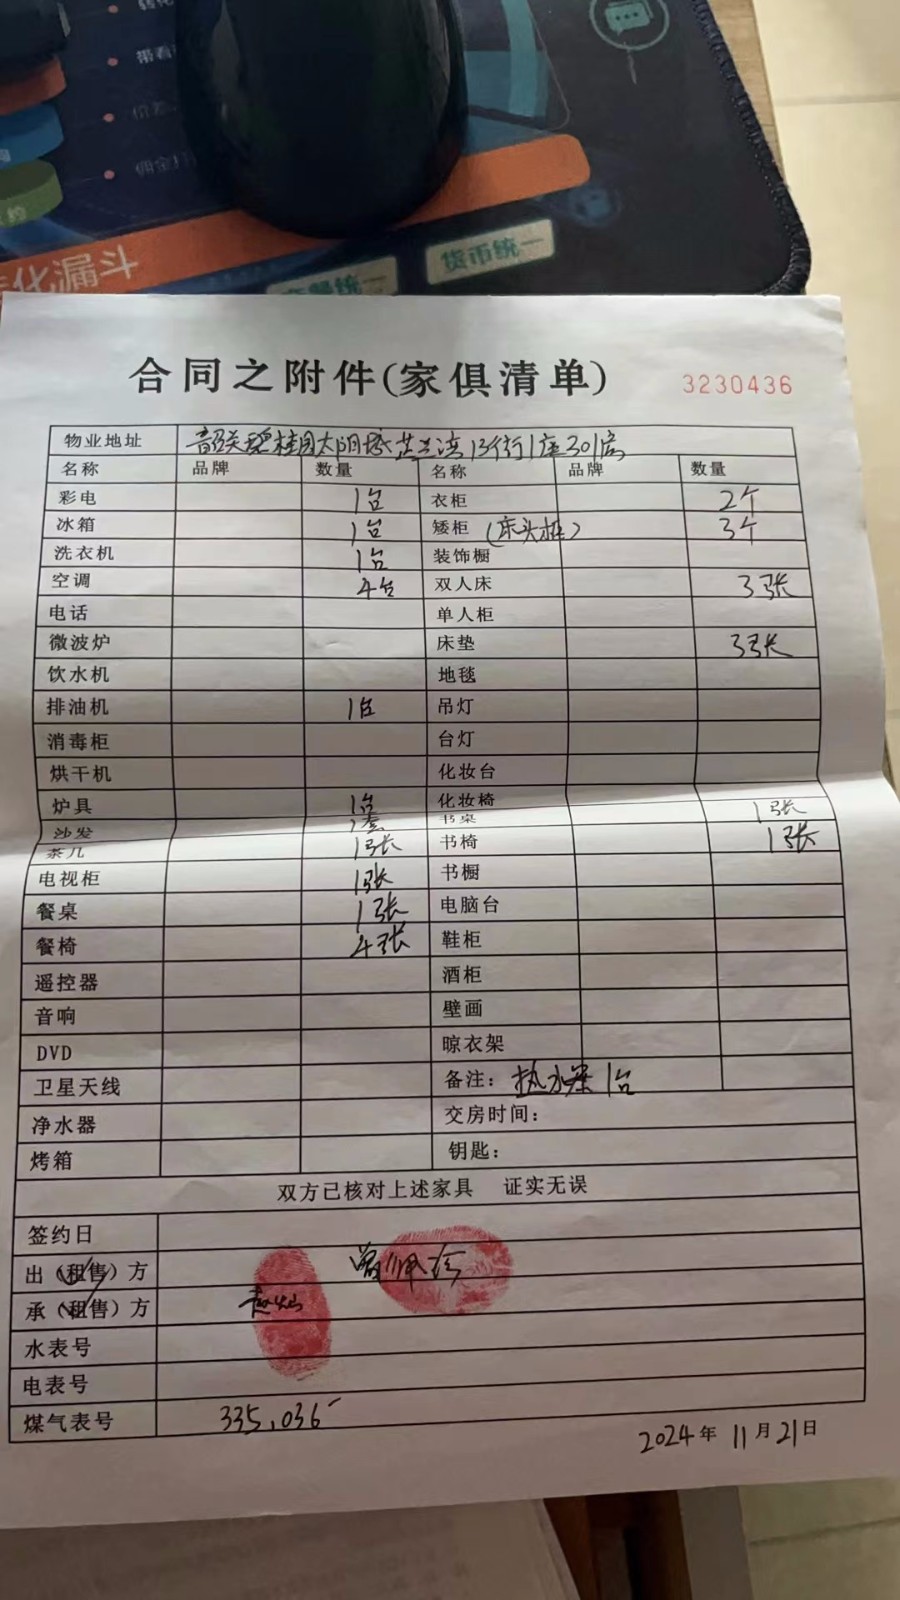 转化
带看
佣金
约
化漏斗
货币统一
合同之附件(家俱清单)
3230436
物业地址 韶关碧桂园太阳城芷兰湾13街1座301房
名称 品牌 数量 名称 品牌 数量
彩电 1台 衣柜 2个
冰箱 1台 矮柜 (床头柜) 3个
洗衣机 1台 装饰橱
空调 4台 双人床 3张
电话 单人柜
微波炉 床垫 3张
饮水机 地毯
排油机 1台 吊灯
消毒柜 台灯
烘干机 化妆台
炉具 1台 化妆椅
沙发 1套 书桌 1张
茶几 1张 书椅 1张
电视柜 1张 书橱
餐桌 1张 电脑台
餐椅 4张 鞋柜
遥控器 酒柜
音响 壁画
DVD 晾衣架
卫星天线 备注: 热水器 1台
净水器 交房时间:
烤箱 钥匙:
双方已核对上述家具 证实无误
签约日
出(租售)方
承(租售)方
水表号
电表号
煤气表号 335,036
2024年 11月21日